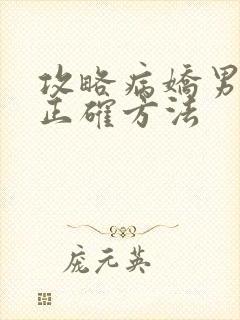 攻略病嬌男
正確方法
庞元英